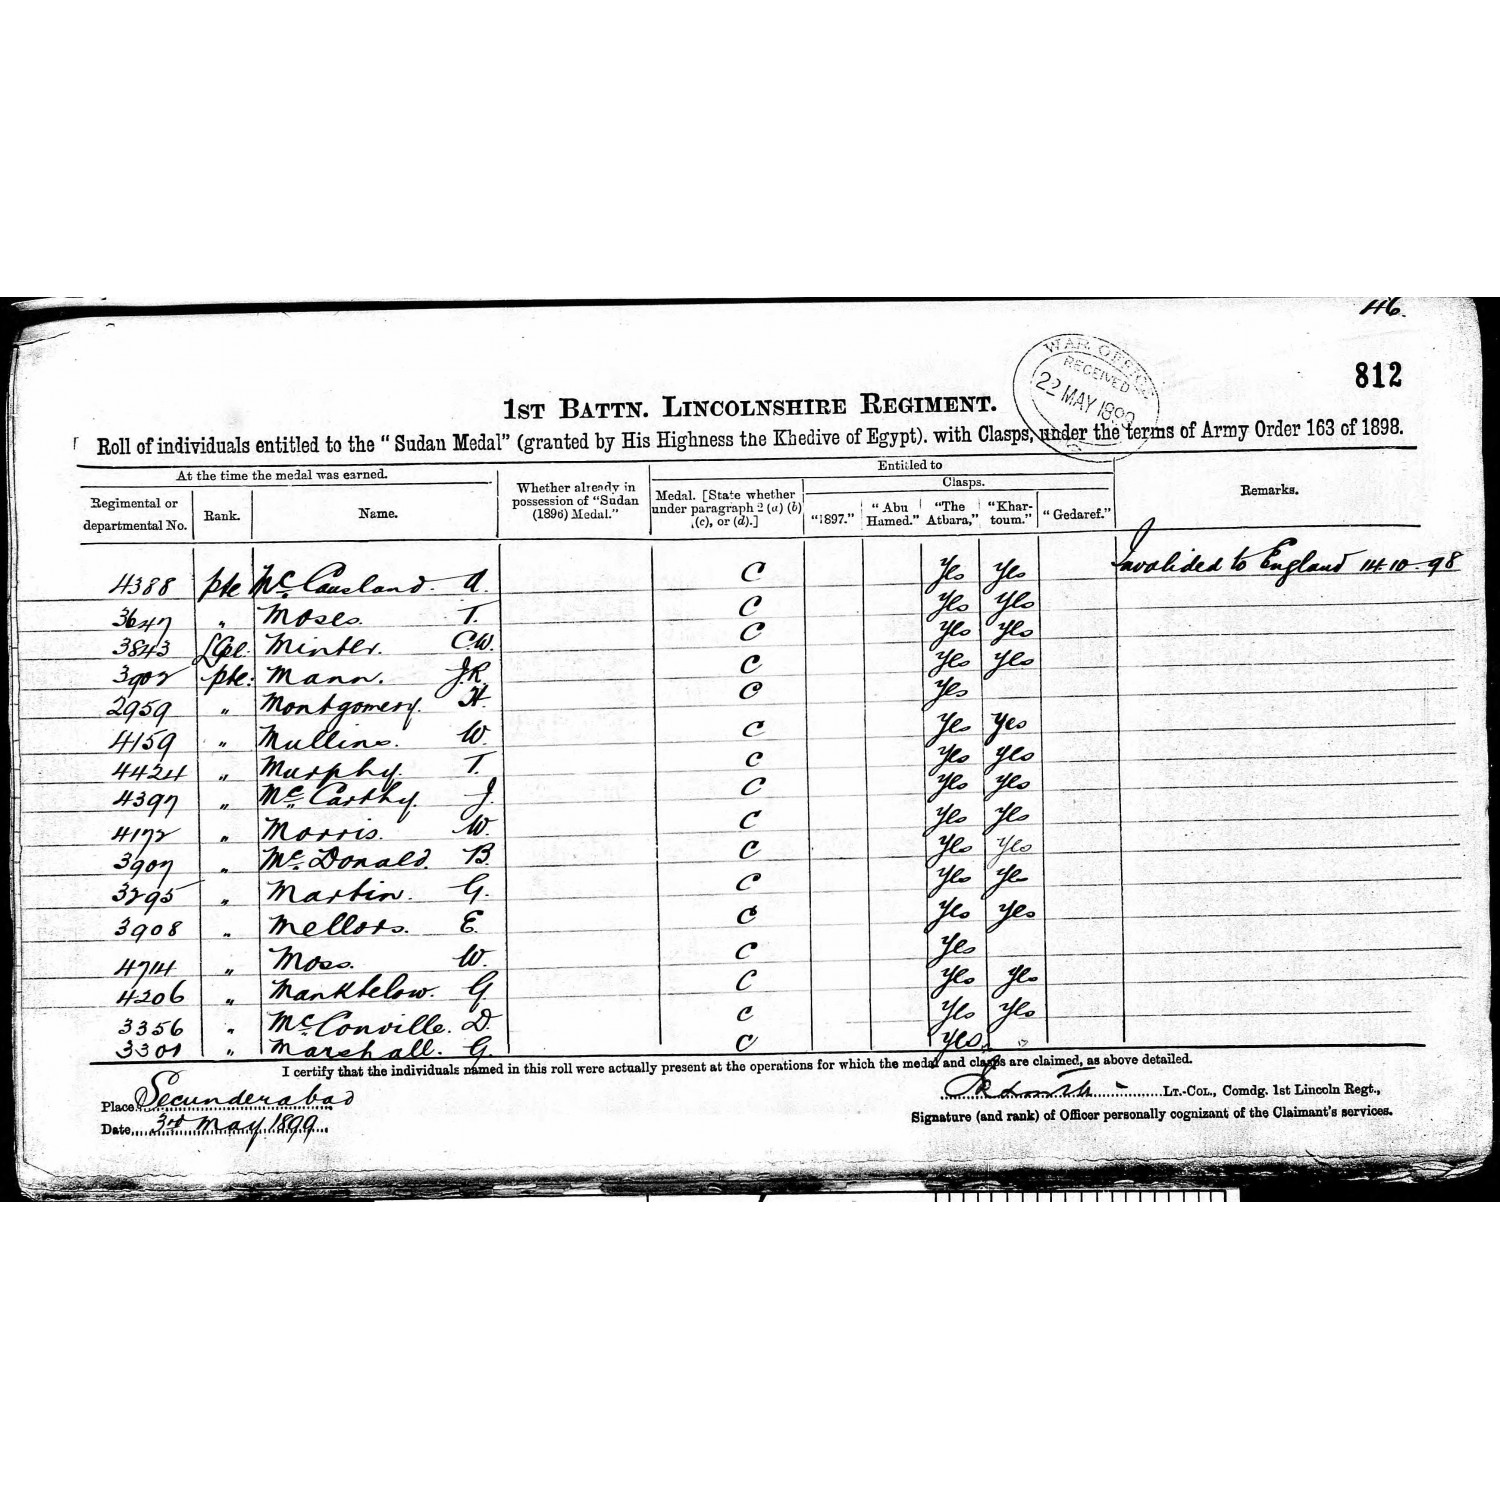 46.
WAR OFFICE
RECEIVED
22 MAY 1899
812
1ST BATTN. LINCOLNSHIRE REGIMENT.
Roll of individuals entitled to the "Sudan Medal" (granted by His Highness the Khedive of Egypt). with Clasps, under the terms of Army Order 163 of 1898.
At the time the medal was earned.
Regimental or departmental No.
Rank.
Name.
Whether already in possession of "Sudan (1896) Medal."
Entitled to
Medal. [State whether under paragraph 2 (a) (b) (c), or (d).]
Clasps.
"1897."
"Abu Hamed."
"The Atbara,"
"Khartoum."
"Gedaref."
Remarks.
4388 pte McCausland. A. C Yes Yes Invalided to England 14.10.98
3647 " Moses. T. C Yes Yes
3843 LCpl. Minter. C.W. C Yes Yes
3902 pte: Mann. J.R. C Yes Yes
2959 " Montgomery. H. C Yes
4159 " Mullins. W. C Yes Yes
4424 " Murphy. T. C Yes Yes
4397 " McCarthy. J. C Yes Yes
4172 " Morris. W. C Yes Yes
3907 " McDonald. B. C Yes Yes
3295 " Martin. G. C Yes Yes
3908 " Mellors. E. C Yes Yes
4714 " Moss. W. C Yes
4206 " Manktelow. G. C Yes Yes
3356 " McConville. D. C Yes Yes
3301 " Marshall. G. C Yes
I certify that the individuals named in this roll were actually present at the operations for which the medal and clasps are claimed, as above detailed.
Place Secunderabad
LT.-COL., Comdg. 1st Lincoln Regt.,
Date 3rd May 1899.
Signature (and rank) of Officer personally cognizant of the Claimant's services.